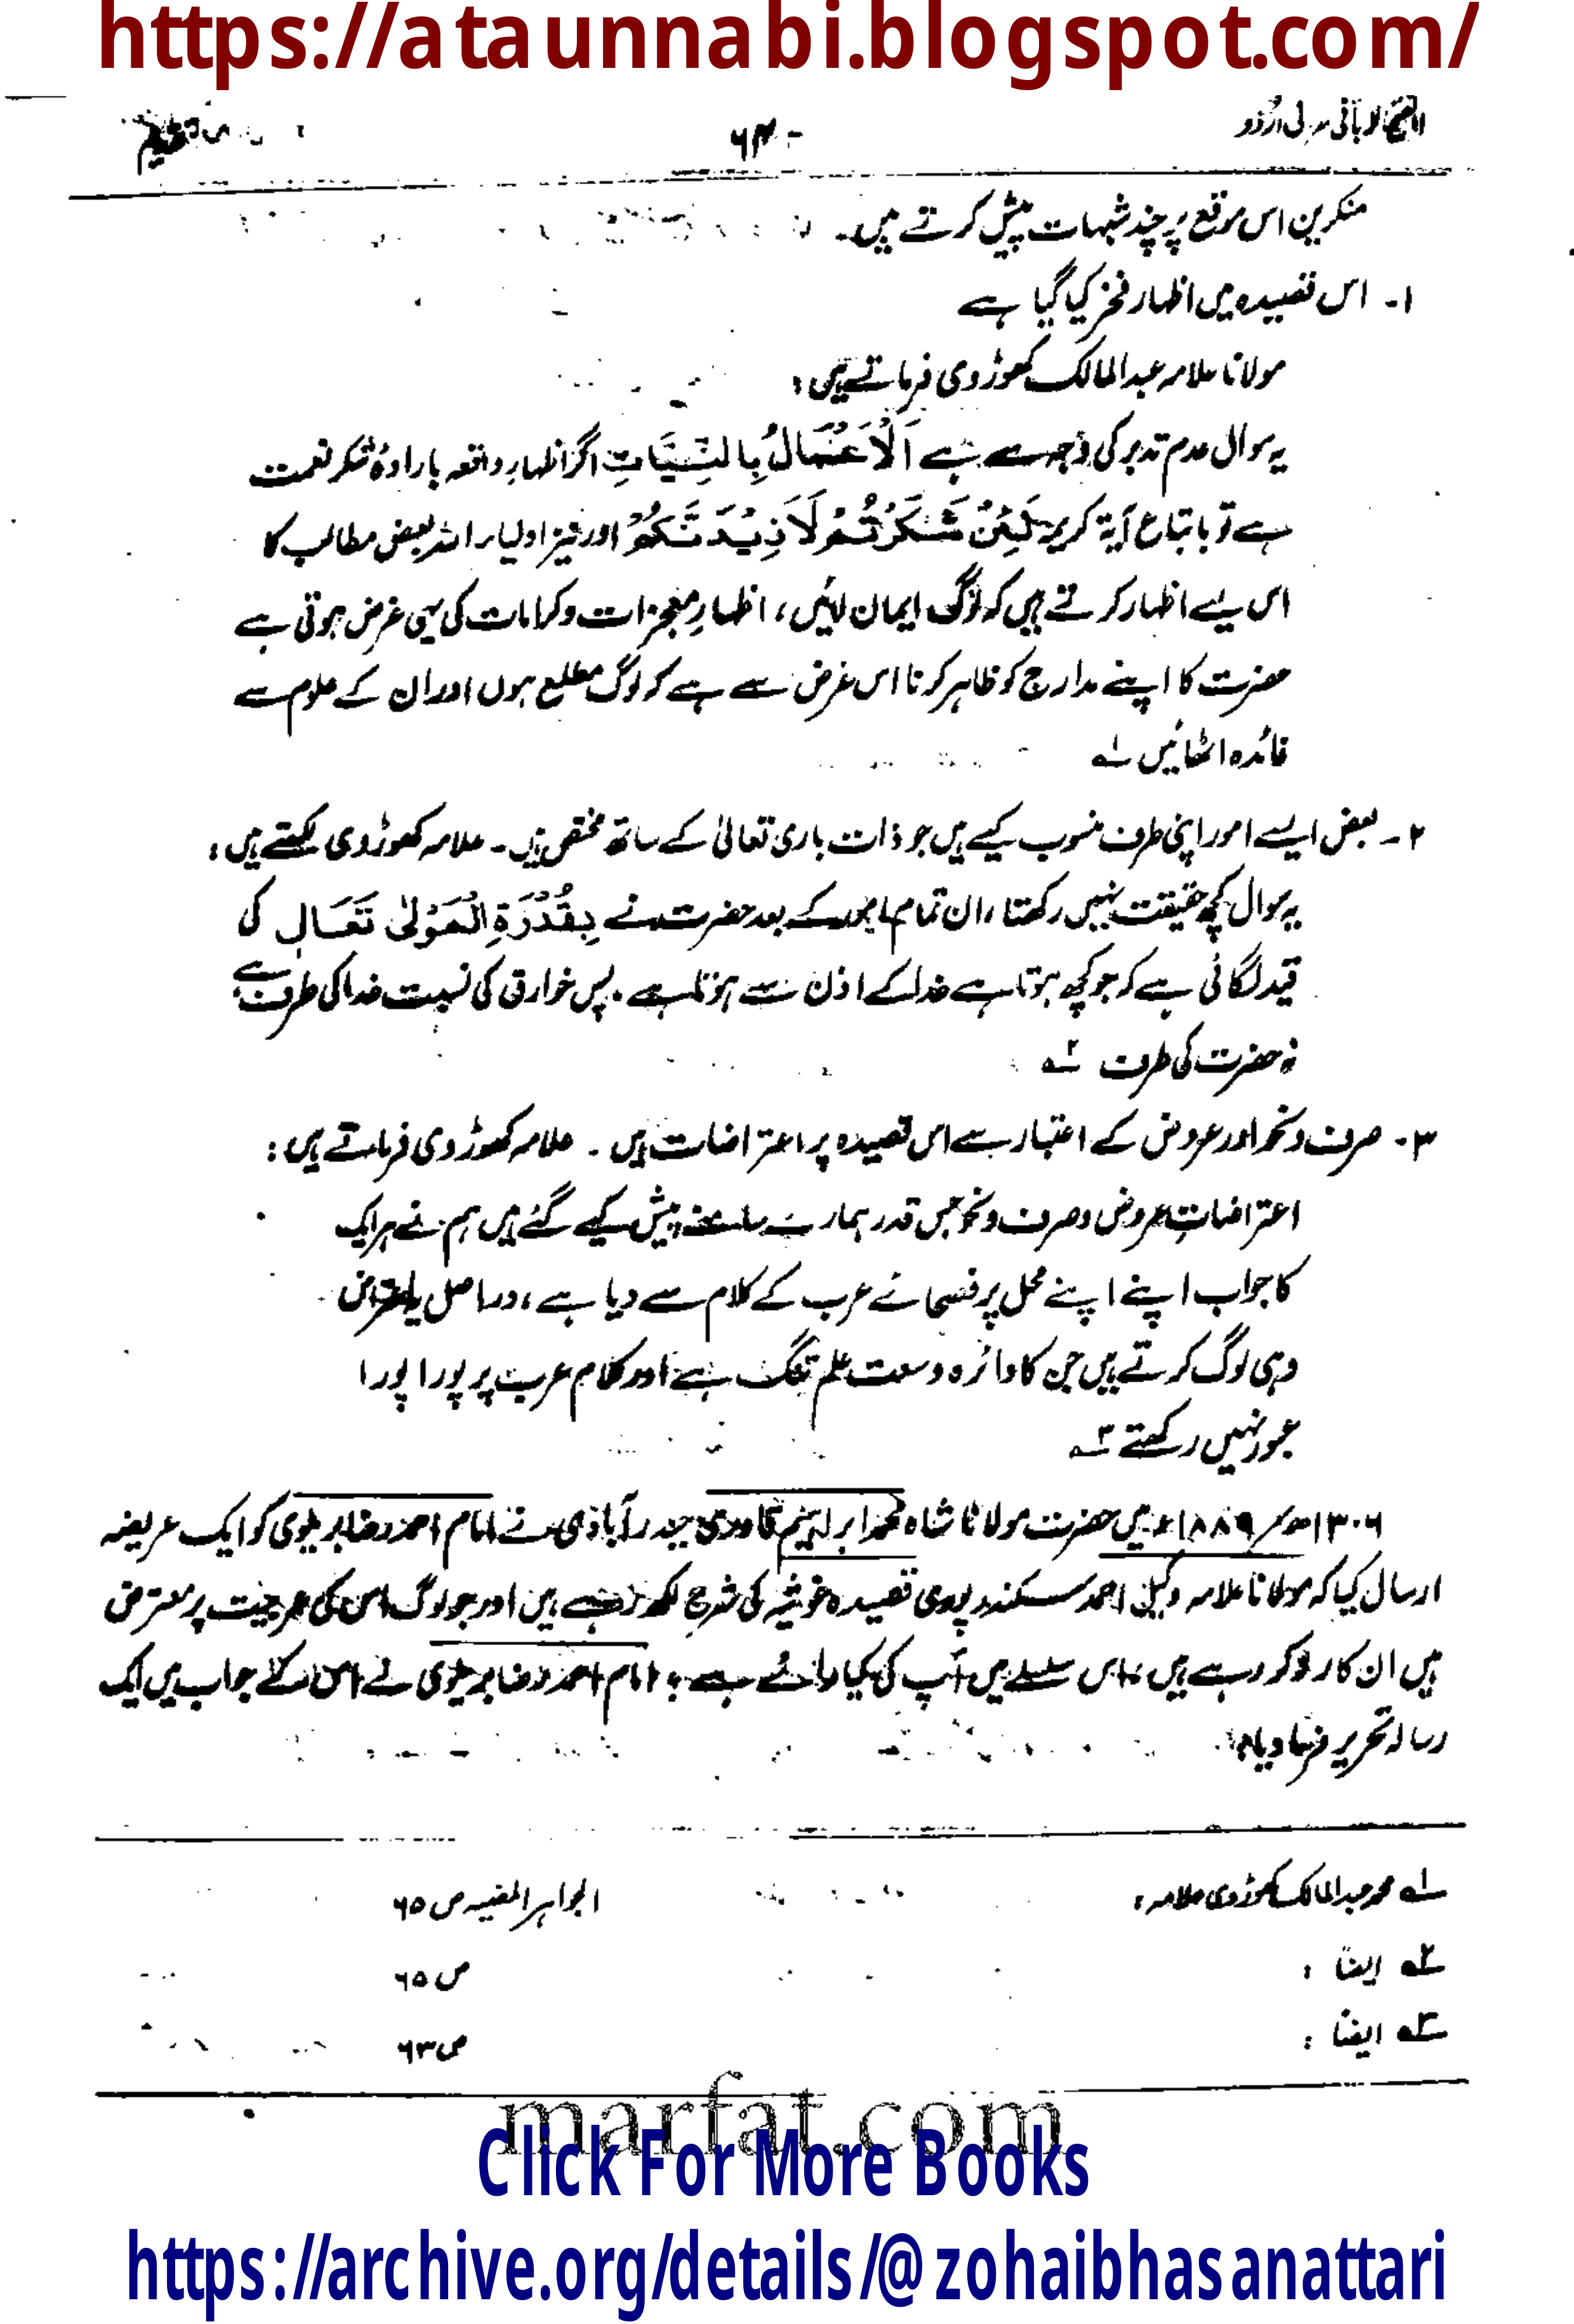 https://ataunnabi.blogspot.com/
الفتح الربانی عربی اردو ۶۴ تقدیم
منکرین اس موقع پر چند شبہات پیش کرتے ہیں۔
۱- اس قصیدہ میں اظہار فخر کیا گیا ہے
مولانا علامہ عبدالمالک کھوڑوی فرماتے ہیں:
یہ سوال عدم تدبر کی وجہ سے ہے اَلْاَعْمَالُ بِالنِّیَّاتِ اگر اظہارِ واقعہ بارادۂ شکر نعمت
ہے تو باتباع آیۃ کریمہ لَئِنْ شَکَرْتُمْ لَاَزِیْدَنَّکُمْ اور نیز اولیاء اللہ بعض مطالب کا
اس لیے اظہار کرتے ہیں کہ لوگ ایمان لائیں، اظہارِ معجزات و کرامات کی یہی غرض ہوتی ہے
حضرت کا اپنے مدارج کو ظاہر کرنا اس غرض سے ہے کہ لوگ مطلع ہوں اور ان کے علوم سے
فائدہ اٹھائیں ۱؎
۲- بعض ایسے امور اپنی طرف منسوب کیے ہیں جو ذات باری تعالیٰ کے ساتھ مختص ہیں۔ علامہ کھوڑوی لکھتے ہیں:
یہ سوال کچھ حقیقت نہیں رکھتا، ان تمام امور کے بعد حضرت نے بِقُدْرَۃِ الْمَوْلٰی تَعَالٖ کی
قید لگائی ہے کہ جو کچھ ہوتا ہے خدا کے اذن سے ہوتا ہے۔ پس خوارق کی نسبت خدا کی طرف ہے
نہ حضرت کی طرف ۲؎
۳- صرف و نحو اور عروض کے اعتبار سے اس قصیدہ پر اعتراضات ہیں۔ علامہ کھوڑوی فرماتے ہیں:
اعتراضاتِ عروض و صرف و نحو جس قدر ہمارے سامنے پیش کیے گئے ہیں ہم نے ہر ایک
کا جواب اپنے اپنے محل پر فصحائے عرب کے کلام سے دیا ہے، دراصل یہ اعتراض
وہی لوگ کرتے ہیں جن کا دائرہ وسعت علم تنگ ہے اور کلام عرب پر پورا پورا
عبور نہیں رکھتے ۳؎
۱۳۰۶ھ/۱۸۸۹ء میں حضرت مولانا شاہ محمد ابراہیم قادری حیدرآبادی نے امام احمد رضا بریلوی کو ایک عریضہ
ارسال کیا کہ مولانا علامہ وکیل احمد سکندرپوری قصیدہ غوثیہ کی شرح لکھ رہے ہیں اور جو لوگ اس کی عربیت پر معترض
ہیں ان کا رد کر رہے ہیں، اس سلسلے میں آپ کی کیا رائے ہے؟ امام احمد رضا بریلوی نے اس کے جواب میں ایک
رسالہ تحریر فرما دیا
۱؎ محمد عبدالمالک کھوڑوی علامہ: الجواہر المضیہ ص ۶۵
۲؎ ایضاً: ص ۶۵
۳؎ ایضاً: ص ۶۳
marfat.com
Click For More Books
https://archive.org/details/@zohaibhasanattari